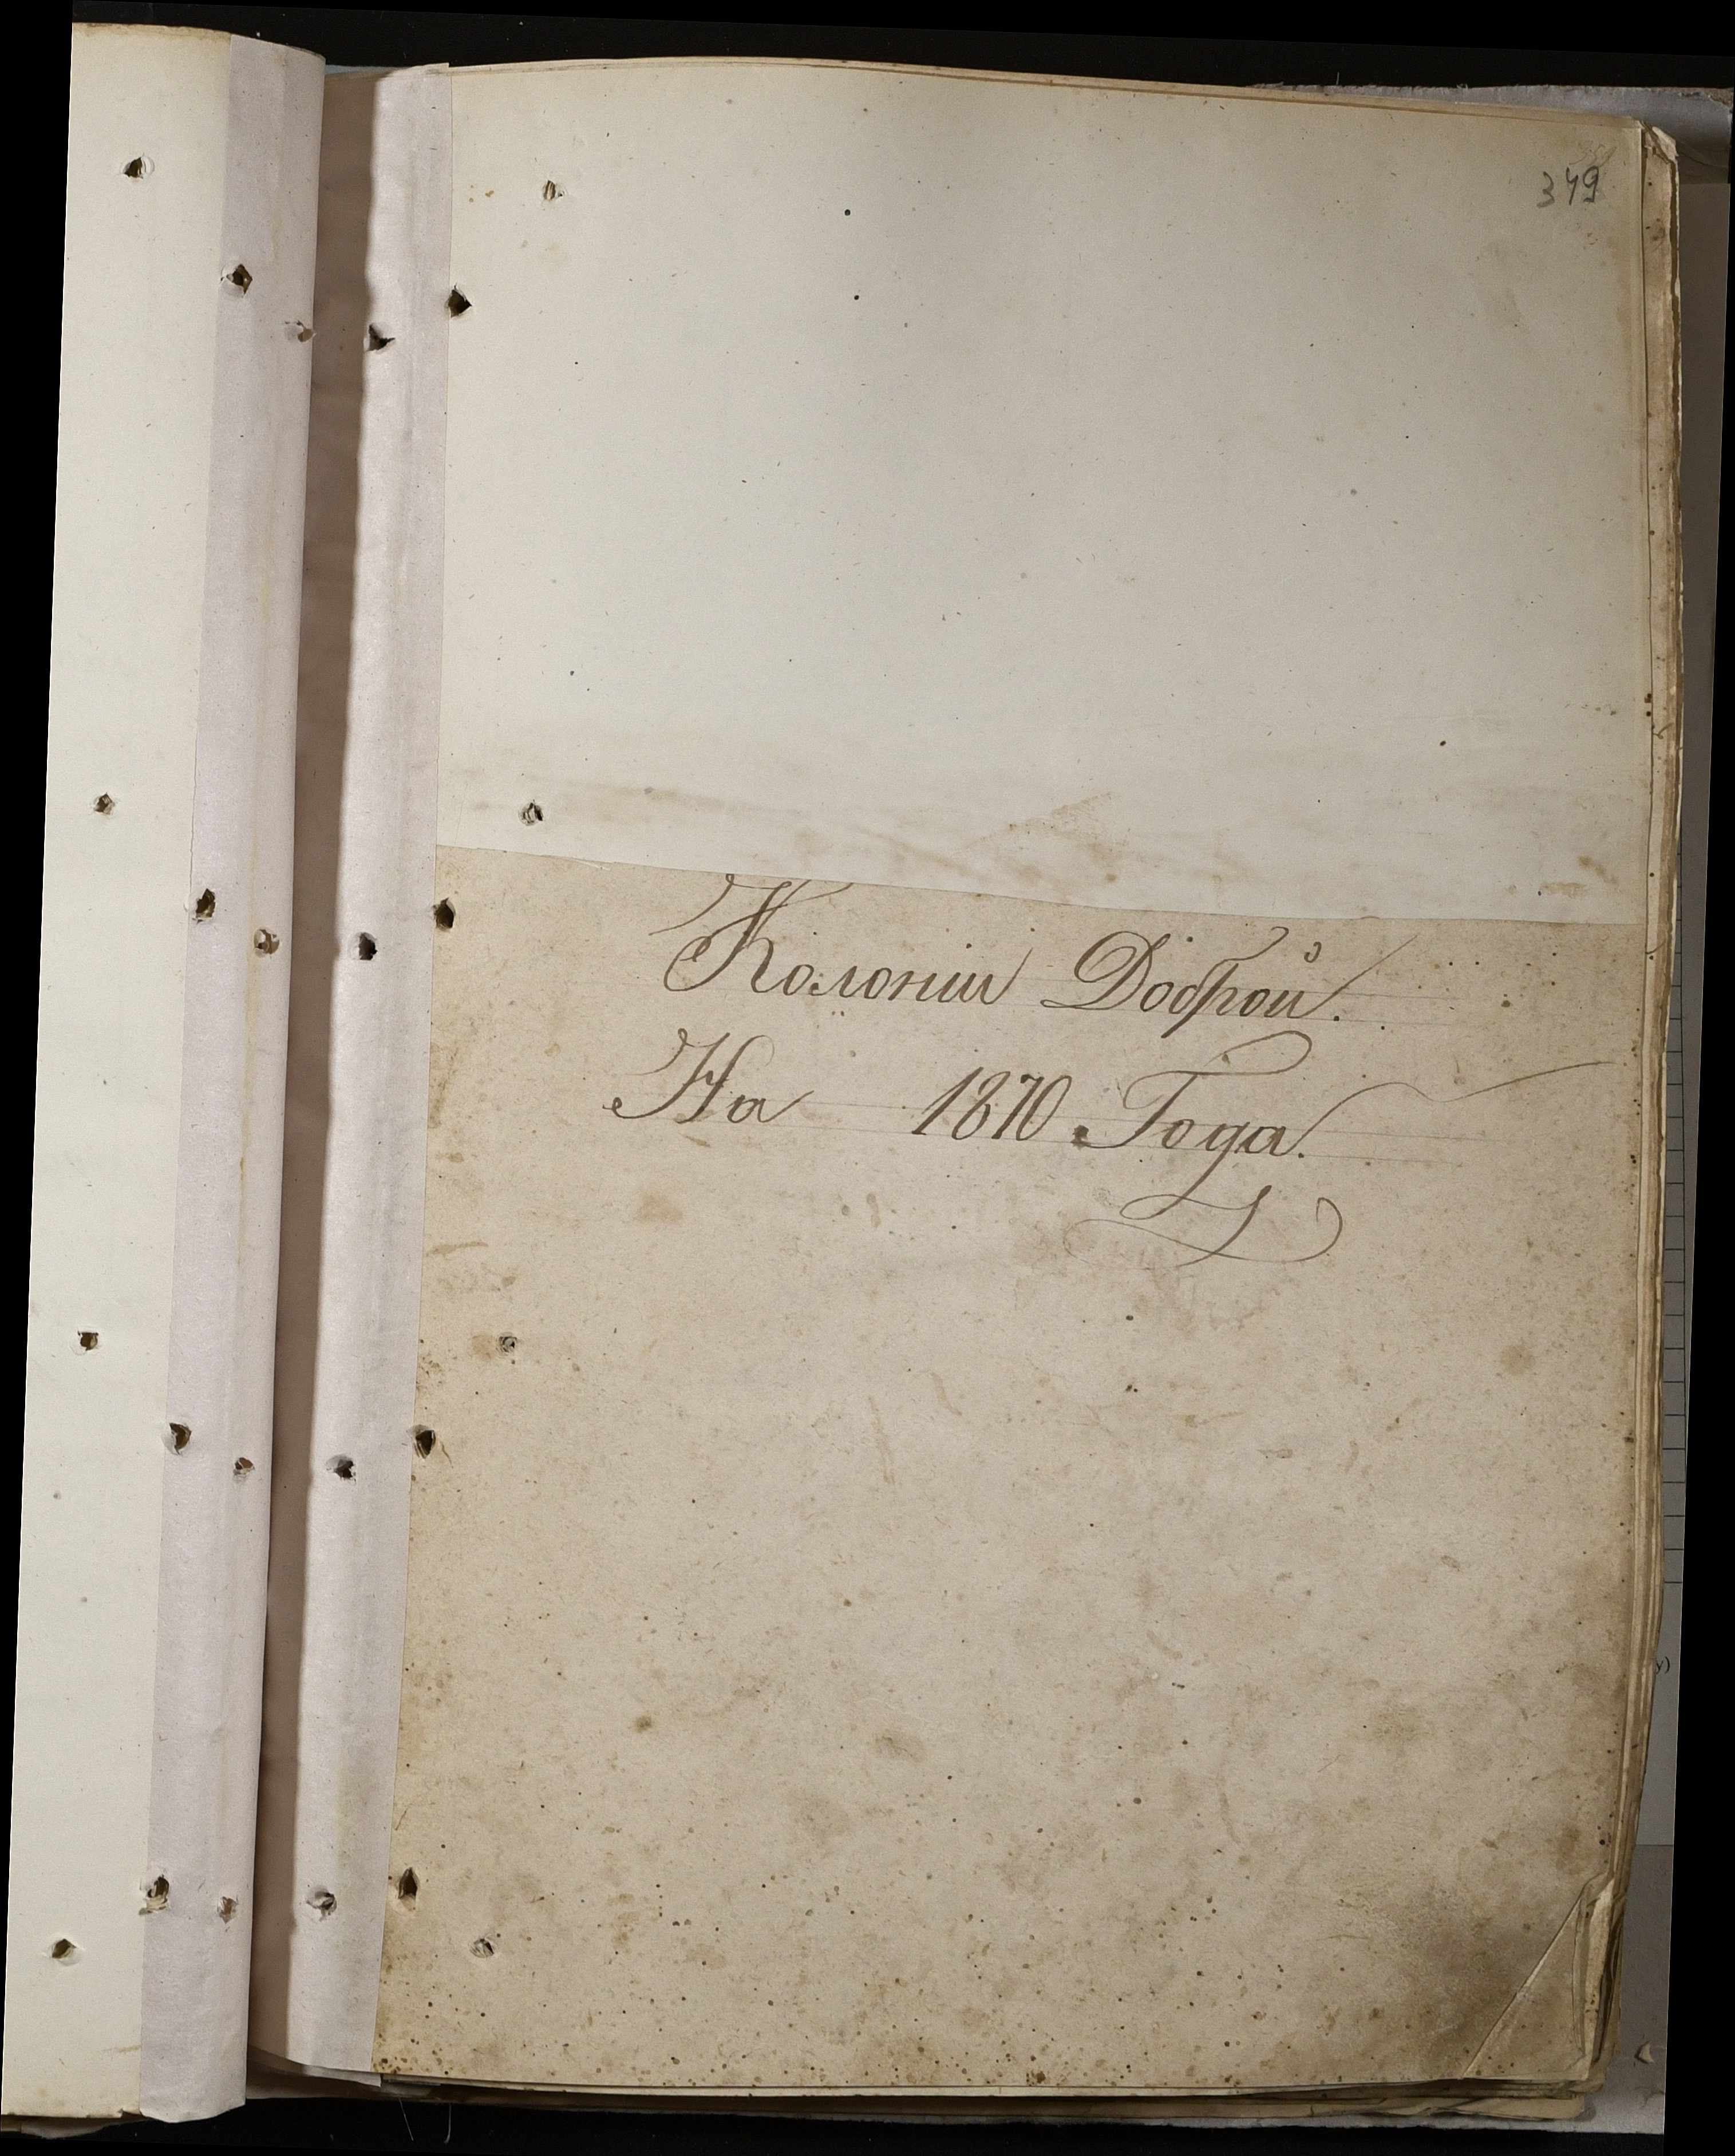 349
Колоніи Доброй.
На 1870 Года.